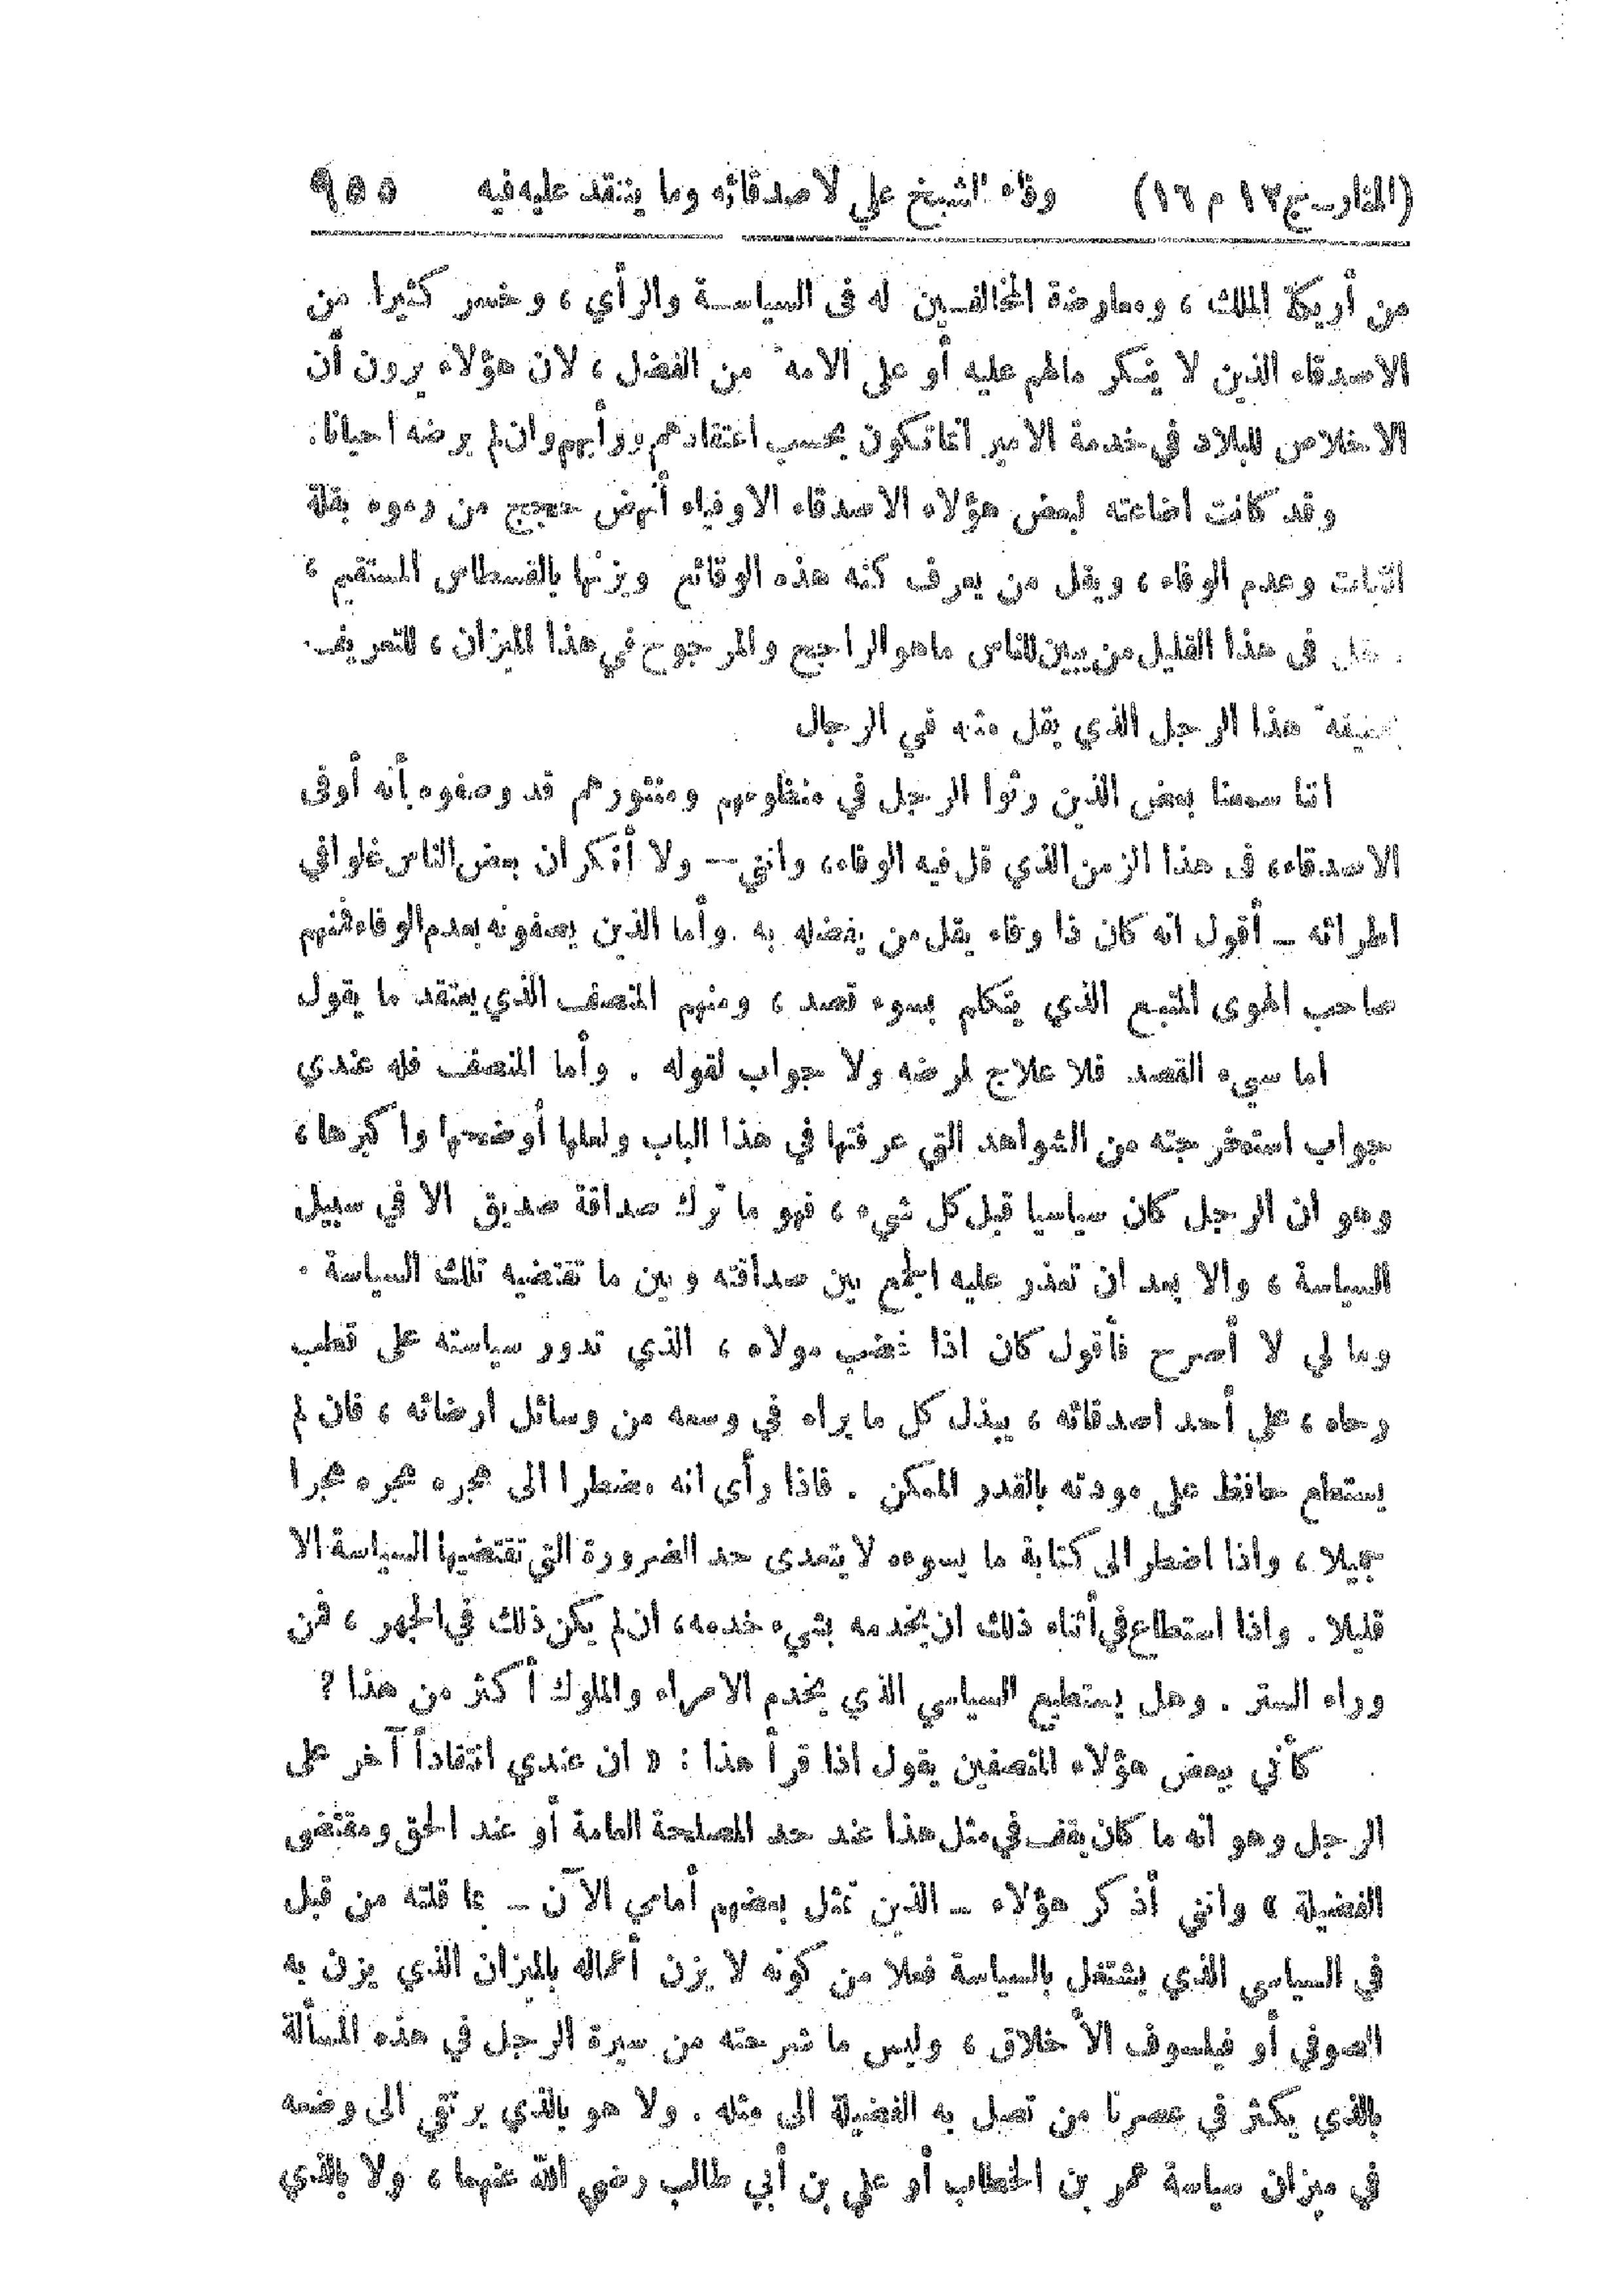 (المنار ــ ج١٢ م ١٦) وفاء الشيخ علي لاصدقائه وما ينتقد عليه فيه ٩٥٥
من أريكة الملك ، ومعارضة المخالفين له فى السياسة والرأي ، وخسر كثيرا من
الاصدقاء الذين لا ينكر مالهم عليه أو على الامة من الفضل ، لان هؤلاء يرون أن
الاخلاص للبلاد في خدمة الامير انما تكون بحسب اعتقادهم ورأيهم وان لم يرضه احيانا.
وقد كانت اضاعته لبعض هؤلاء الاصدقاء الاوفياء أنهض حجج من رموه بقلة
الثبات وعدم الوفاء ، ويقل من يعرف كنه هذه الوقائع ويزنها بالقسطاس المستقيم ،
فى هذا القليل من يبين للناس ماهو الراجح والمرجوح في هذا الميزان ، للتعريف
هذا الرجل الذي يقل مثله في الرجال
اننا سمعنا بعض الذين رثوا الرجل في منظومهم ومنثورهم قد وصفوه بأنه أوفى
الاصدقاء، فى هذا الزمن الذي قل فيه الوفاء، وانني -- ولا أنكر ان بعض الناس غلوا في
اطرائه ــ أقول انه كان ذا وفاء يقل من يفضله به . وأما الذين يصفونه بعدم الوفاء فمنهم
صاحب الهوى المتبع الذي يتكلم بسوء قصد ، ومنهم المنصف الذي يعتقد ما يقول
اما سيء القصد فلا علاج لمرضه ولا جواب لقوله . وأما المنصف فله عندي
جواب استخرجته من الشواهد التي عرفتها في هذا الباب ولعلها أوضحها واكبرها ،
وهو ان الرجل كان سياسيا قبل كل شيء ، فهو ما ترك صداقة صديق الا في سبيل
السياسة ، والا بعد ان تعذر عليه الجمع بين صداقته وبين ما تقتضيه تلك السياسة .
وما لي لا أصرح فأقول كان اذا غضب مولاه ، الذي تدور سياسته على قطب
رحاه ، على أحد اصدقائه ، يبذل كل ما يراه في وسعه من وسائل ارضائه ، فان لم
يستطع حافظ على مودته بالقدر الممكن . فاذا رأى انه مضطرا الى هجره هجره هجرا
جميلا ، واذا اضطر الى كتابة ما يسوءه لا يتعدى حد الضرورة التي تقتضيها السياسة الا
قليلا . واذا استطاع في أثناء ذلك ان يخدمه بشيء خدمه، ان لم يكن ذلك في الجهر ، فمن
وراء الستر . وهل يستطيع السياسي الذي يخدم الامراء والملوك أكثر من هذا ؟
كأني ببعض هؤلاء المنصفين يقول اذا قرأ هذا : « ان عندي انتقاداً آخر على
الرجل وهو انه ما كان يقف في مثل هذا عند حد المصلحة العامة أو عند الحق ومقتضى
الفضيلة » وانني أذكر هؤلاء ــ الذين تمثل بعضهم أمامي الآن ــ بما قلته من قبل
في السياسي الذي يشتغل بالسياسة فعلا من كونه لا يزن أعماله بالميزان الذي يزن به
الصوفي أو فيلسوف الأخلاق ، وليس ما شرحته من سيرة الرجل في هذه المسألة
بالذي يكثر في عصرنا من تصل به الفضيلة الى مثله . ولا هو بالذي يرتقي الى وضعه
في ميزان سياسة عمر بن الخطاب أو علي بن أبي طالب رضي الله عنهما ، ولا بالذي